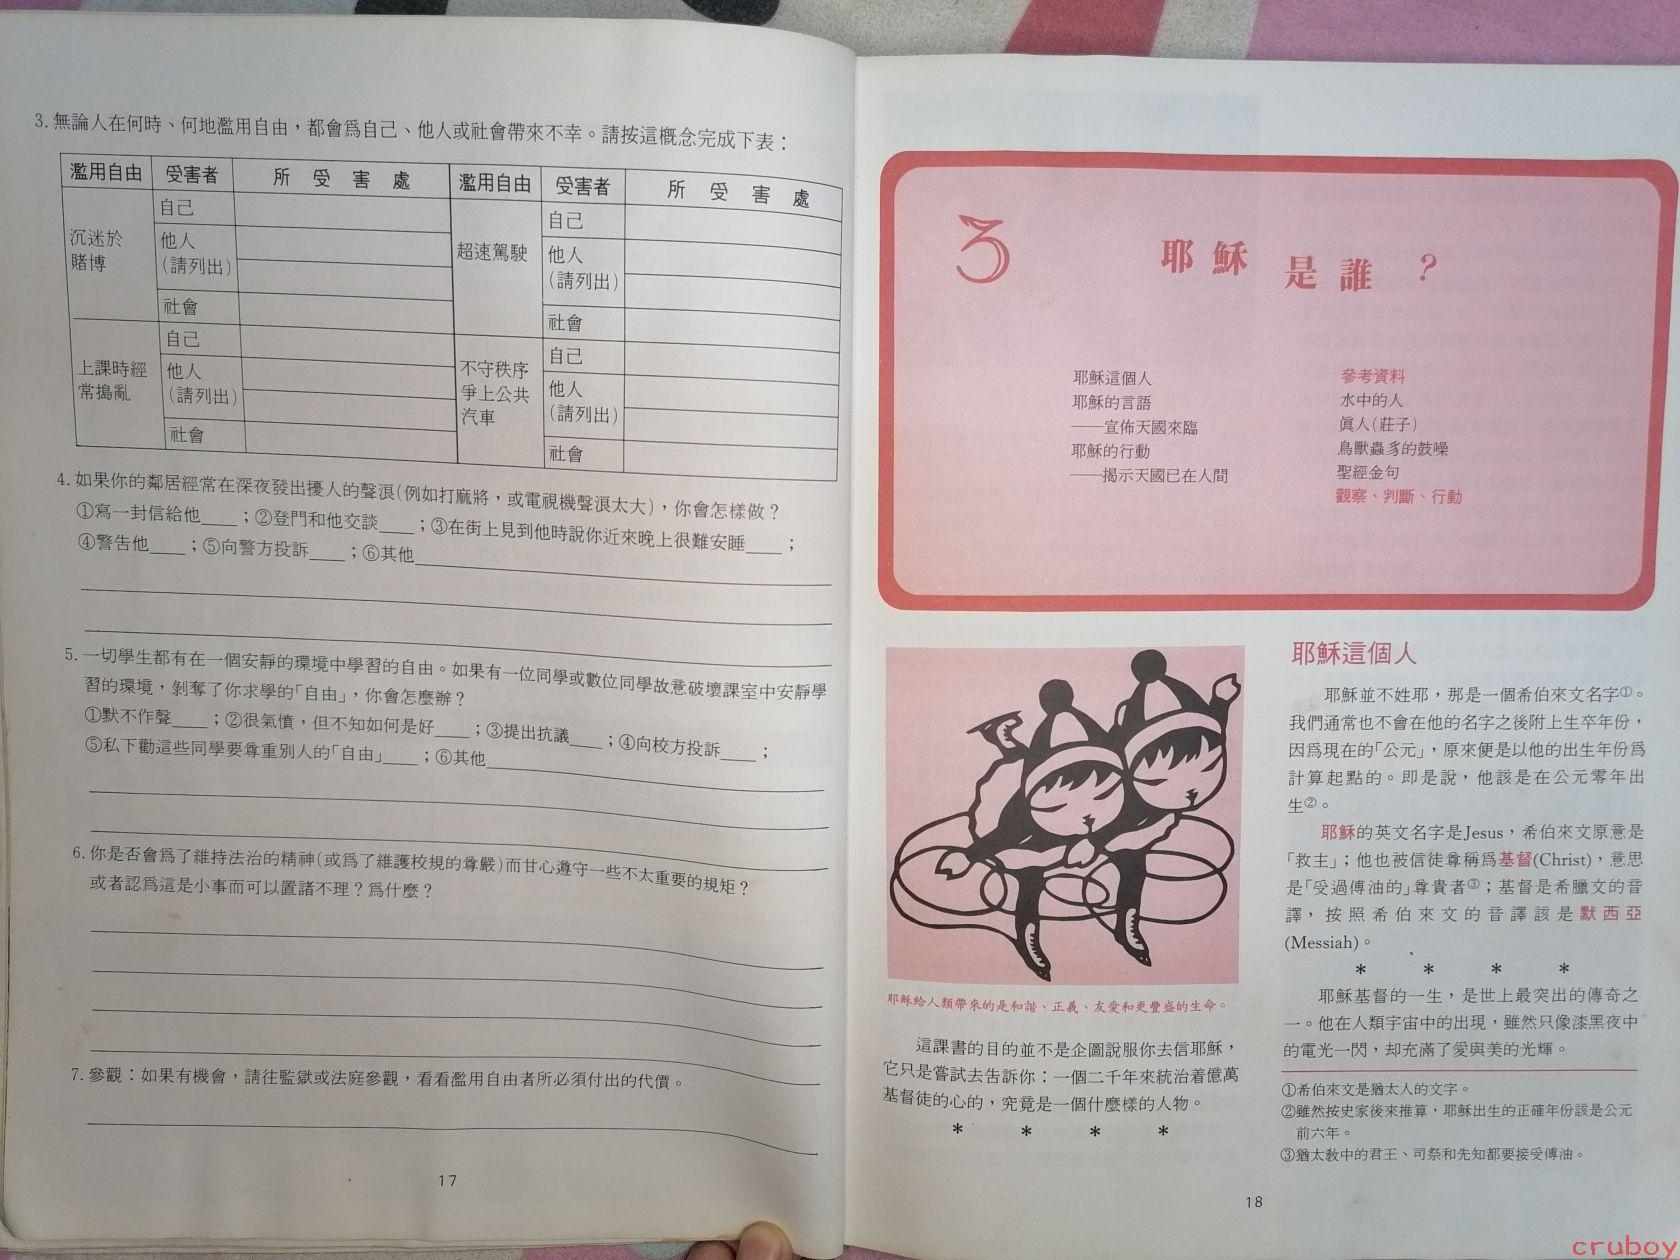 3. 無論人在何時、何地濫用自由，都會爲自己、他人或社會帶來不幸。請按這概念完成下表：
濫用自由 受害者 所受害處 濫用自由 受害者 所受害處
沉迷於
賭博
自己
他人
(請列出)
社會
超速駕駛
自己
他人
(請列出)
社會
上課時經
常搗亂
自己
他人
(請列出)
社會
不守秩序
爭上公共
汽車
自己
他人
(請列出)
社會
4. 如果你的鄰居經常在深夜發出擾人的聲浪(例如打麻將，或電視機聲浪太大)，你會怎樣做？
①寫一封信給他____；②登門和他交談____；③在街上見到他時說你近來晚上很難安睡____；
④警告他____；⑤向警方投訴____；⑥其他____
5. 一切學生都有在一個安靜的環境中學習的自由。如果有一位同學或數位同學故意破壞課室中安靜學
習的環境，剝奪了你求學的「自由」，你會怎麼辦？
①默不作聲____；②很氣憤，但不知如何是好____；③提出抗議____；④向校方投訴____；
⑤私下勸這些同學要尊重別人的「自由」____；⑥其他____
6. 你是否會爲了維持法治的精神(或爲了維護校規的尊嚴)而甘心遵守一些不太重要的規矩？
或者認爲這是小事而可以置諸不理？爲什麼？
7. 參觀：如果有機會，請往監獄或法庭參觀，看看濫用自由者所必須付出的代價。
17
3 耶穌是誰？
耶穌這個人
耶穌的言語
——宣佈天國來臨
耶穌的行動
——揭示天國已在人間
參考資料
水中的人
眞人(莊子)
鳥獸蟲豸的鼓噪
聖經金句
觀察、判斷、行動
耶穌給人類帶來的是和諧、正義、友愛和更豐盛的生命。
這課書的目的並不是企圖說服你去信耶穌，
它只是嘗試去告訴你：一個二千年來統治着億萬
基督徒的心的，究竟是一個什麼樣的人物。
* * * *
耶穌這個人
耶穌並不姓耶，那是一個希伯來文名字①。
我們通常也不會在他的名字之後附上生卒年份，
因爲現在的「公元」，原來便是以他的出生年份爲
計算起點的。即是說，他該是在公元零年出
生②。
耶穌的英文名字是Jesus，希伯來文原意是
「救主」；他也被信徒尊稱爲基督(Christ)，意思
是「受過傅油的」尊貴者③；基督是希臘文的音
譯，按照希伯來文的音譯該是默西亞
(Messiah)。
* * * *
耶穌基督的一生，是世上最突出的傳奇之
一。他在人類宇宙中的出現，雖然只像漆黑夜中
的電光一閃，却充滿了愛與美的光輝。
①希伯來文是猶太人的文字。
②雖然按史家後來推算，耶穌出生的正確年份該是公元
前六年。
③猶太敎中的君王、司祭和先知都要接受傅油。
18
cruboy